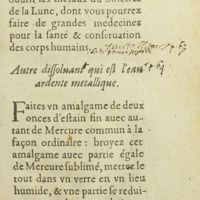 outil les metaux du Soleil &
de la Lune, dont vous pourrez
faire de grandes medecines
pour la santé & conseruation
des corps humains.
Autre dissoluant qui est l'eau
ardente metallique.
Faites vn amalgame de deux
onces d'estain fin auec au-
tant de Mercure commun à la
façon ordinaire : broyez cet
amalgame auec partie égale
de Mercure sublimé, mettez le
tout dans vn verre en vn lieu
humide, & vne partie se redui-